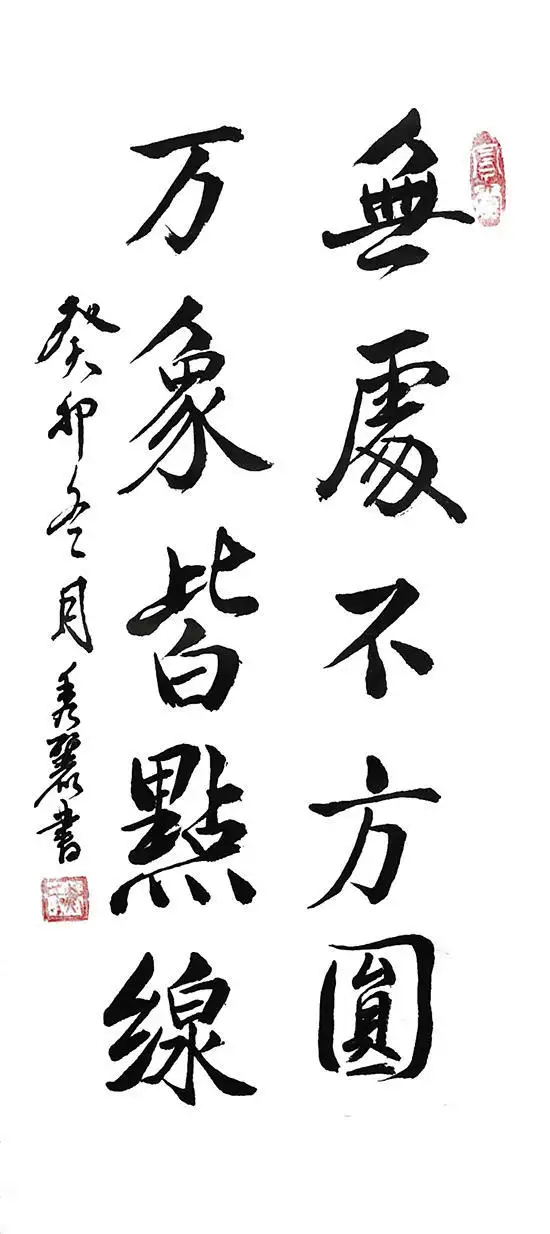 無處不方圓
万象皆點線
癸卯冬月秀麗書